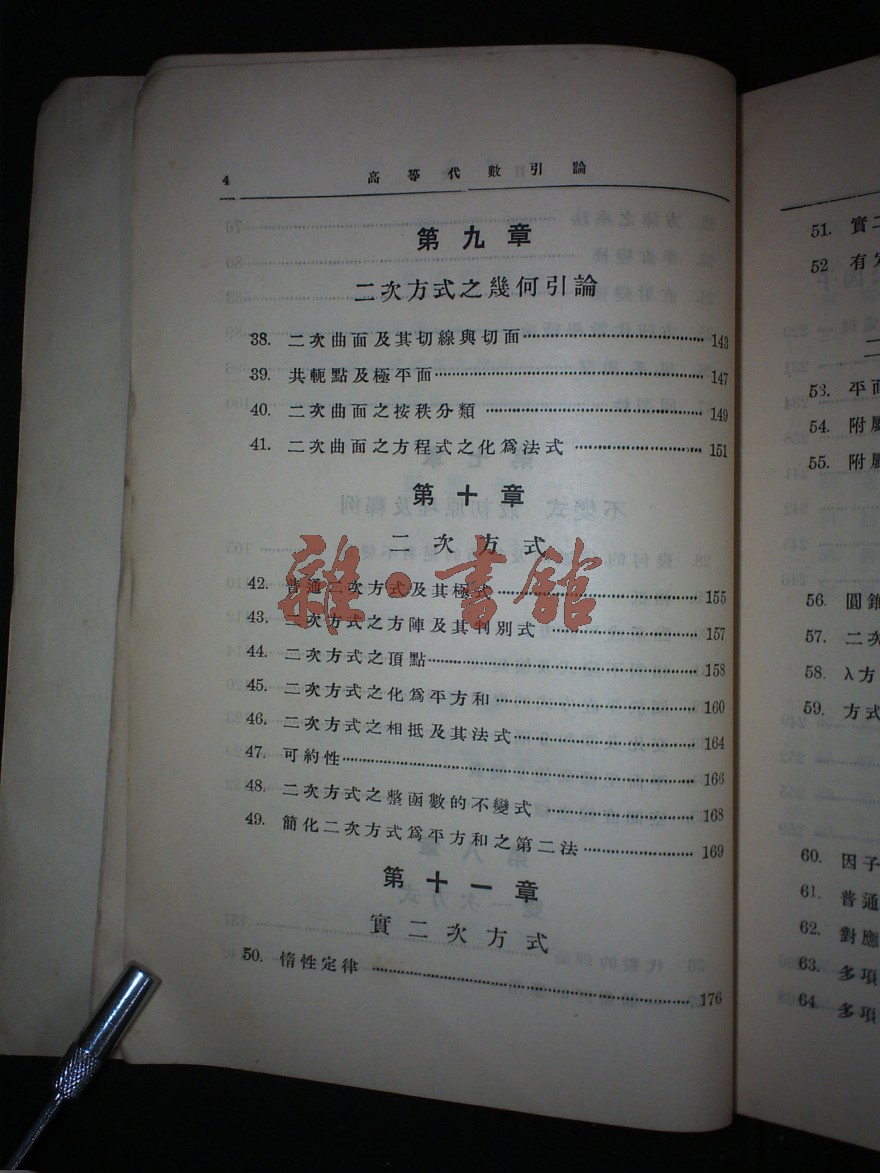 4 高等代數引論
第九章
二次方式之幾何引論
38. 二次曲面及其切線與切面 143
39. 共軛點及極平面 147
40. 二次曲面之按秩分類 149
41. 二次曲面之方程式之化爲法式 151
第十章
二次方式
42. 普通二次方式及其極式 155
43. 二次方式之方陣及其判別式 157
44. 二次方式之頂點 158
45. 二次方式之化爲平方和 160
46. 二次方式之相抵及其法式 164
47. 可約性 166
48. 二次方式之整函數的不變式 168
49. 簡化二次方式爲平方和之第二法 169
第十一章
實二次方式
50. 惰性定律 176
雜·書館
51. 實二
52 有定
53. 平面
54. 附屬
55. 附屬
56. 圓錐
57. 二次
58. λ方
59. 方式
60. 因子
61. 普通
62. 對應
63. 多項
64. 多項